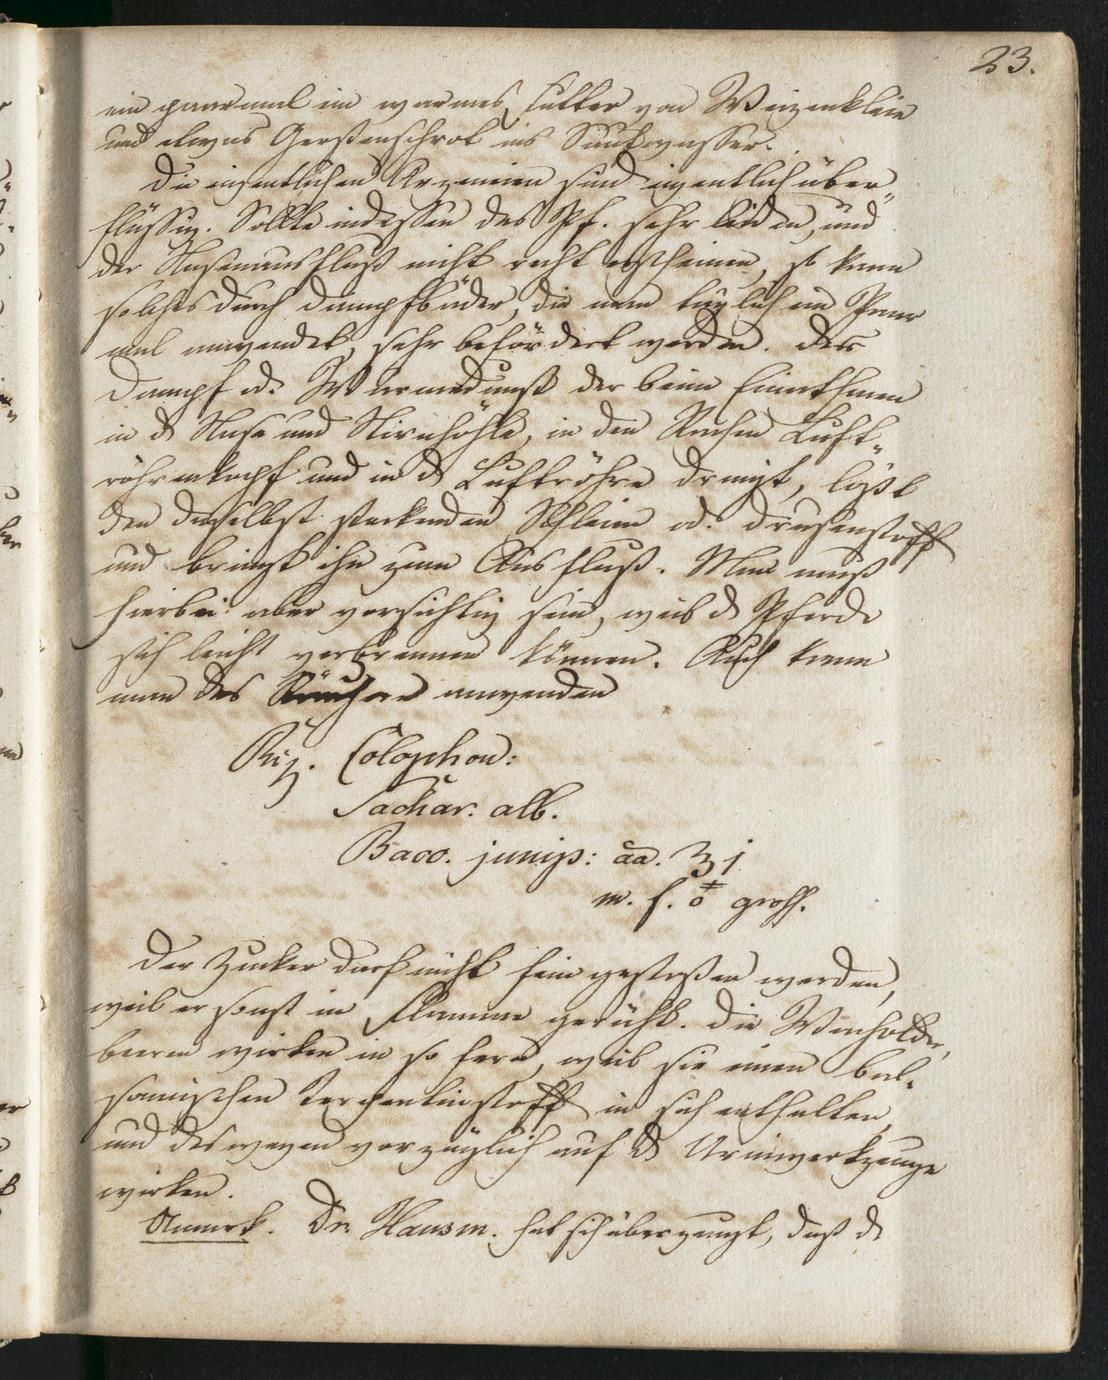 23.
ein paarmal ein warmes Futter von Weizenkleie
und etwas Gerstenschrot ins Saufwasser.
Die eigentlichen Arzeneien sind eigentlich über„
flüssig. Sollte indessen das Pf. sehr leiden, und
der Nasenausfluß nicht recht erscheinen, so kann
solches durch Dampfbäder, die man täglich ein Paar
mal anwendet, sehr befördert werden. Der
Dampf od. Wärmedunst der beim Einathmen
in d Nase und Stirnhöhle, in den Rachen Luft„
röhrenkopf und in d Luftröhre dringt, lößt
den daselbst stockenden Schleim od. Drusenstoff
und bringt ihn zum Ausfluß. Man muß
hierbei aber vorsichtig sein, weil d Pferde
sich leicht verbrennen können. Auch kann
man das anwenden
Colophon:
Sachar. alb.
Bacc. junip: aa. ʒ j
m. f. gross.
Der Zucker darf nicht fein gestoßen werden,
weil er sonst in Flamme geräth. Die Wacholder„
beeren wirken in so fern, weil sie einen bal„
samischen Terpentinstoff in sich enthalten,
und deswegen vorzüglich auf d Urinwerkzeuge
wirken.
Anmerk. Dr. Hausm. hat sich überzeugt, daß d